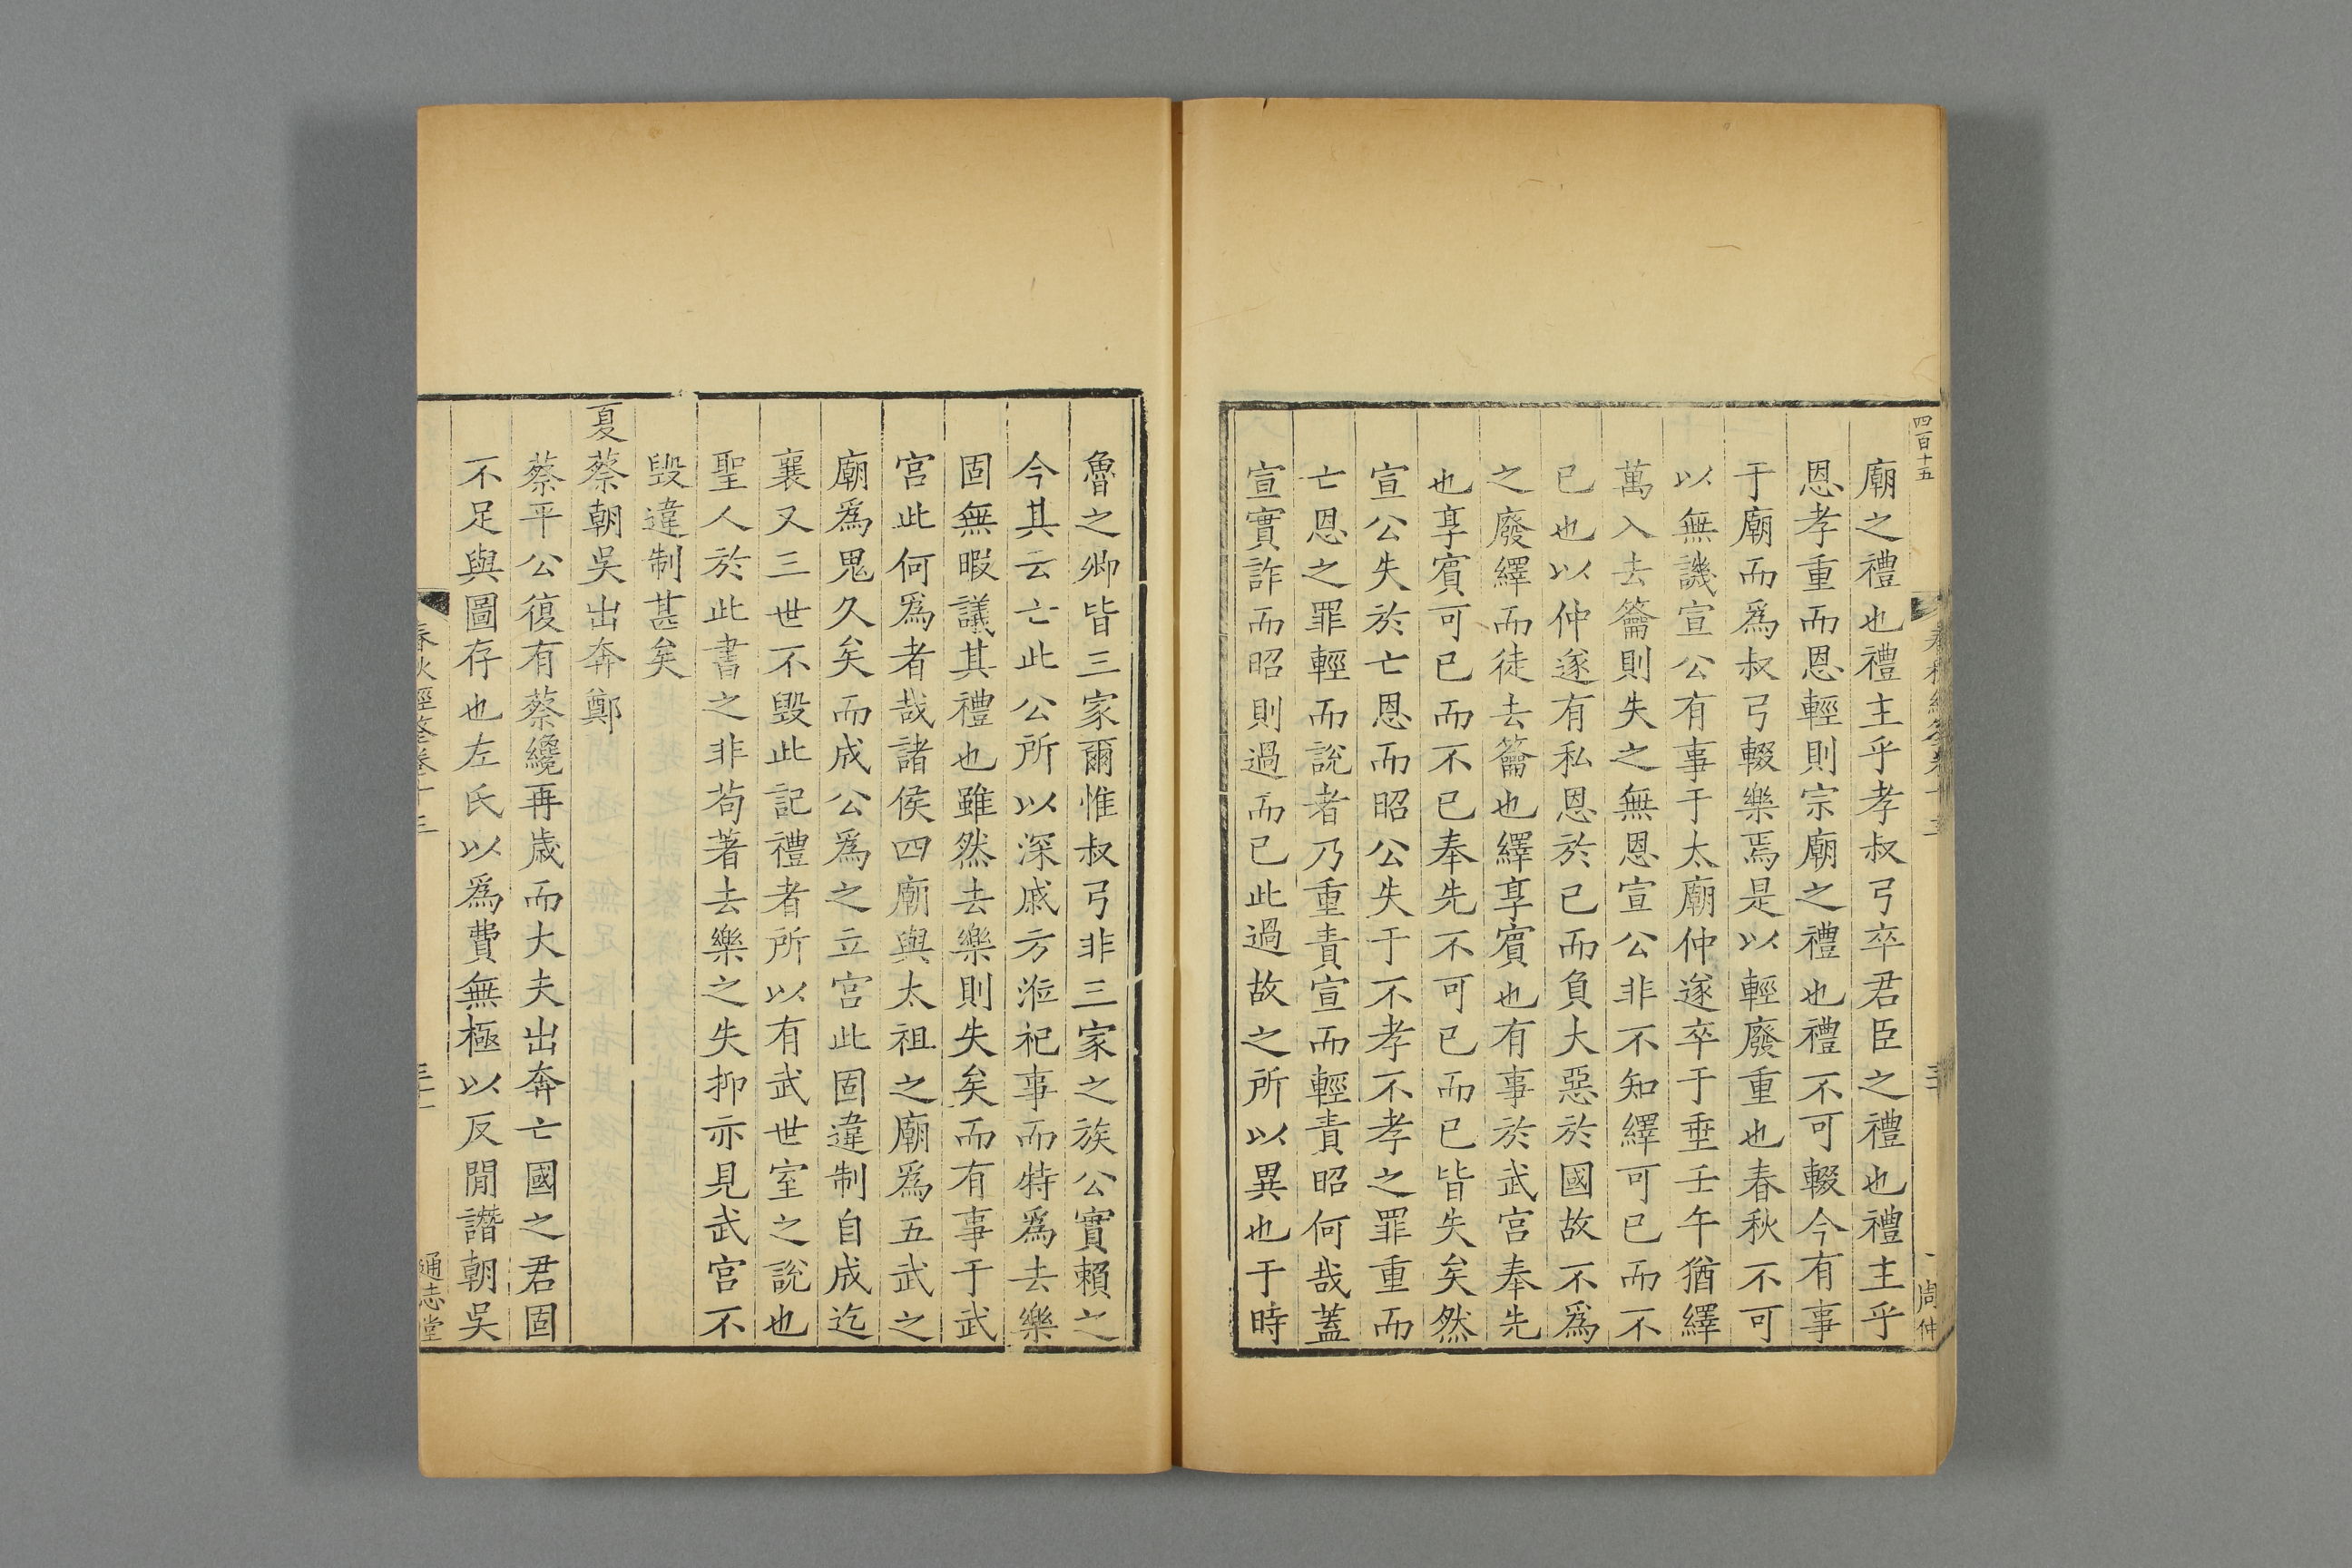 四百十五
春秋經筌卷十三
三十
周仲
廟之禮也禮主乎孝叔弓卒君臣之禮也禮主乎
恩孝重而恩輕則宗廟之禮也禮不可輟今有事
于廟而爲叔弓輟樂焉是以輕廢重也春秋不可
以無譏宣公有事于太廟仲遂卒于垂壬午猶繹
萬入去籥則失之無恩宣公非不知繹可已而不
已也以仲遂有私恩於已而負大惡於國故不爲
之廢繹而徒去籥也繹享賔也有事於武宮奉先
也享賔可已而不已奉先不可已而已皆失矣然
宣公失於亡恩而昭公失于不孝不孝之罪重而
亡恩之罪輕而說者乃重責宣而輕責昭何哉蓋
宣實詐而昭則過而已此過故之所以異也于時
魯之卿皆三家爾惟叔弓非三家之族公實賴之
今其云亡此公所以深戚方涖祀事而特爲去樂
固無暇議其禮也雖然去樂則失矣而有事于武
宮此何爲者哉諸侯四廟與太祖之廟爲五武之
廟爲鬼久矣而成公爲之立宮此固違制自成迄
襄又三世不毀此記禮者所以有武世室之說也
聖人於此書之非茍著去樂之失抑亦見武宮不
毀違制甚矣
夏蔡朝吳出奔鄭
蔡平公復有蔡纔再歲而大夫出奔亡國之君固
不足與圖存也左氏以爲費無極以反間譖朝吳
春秋經筌卷十三
三十一
通志堂